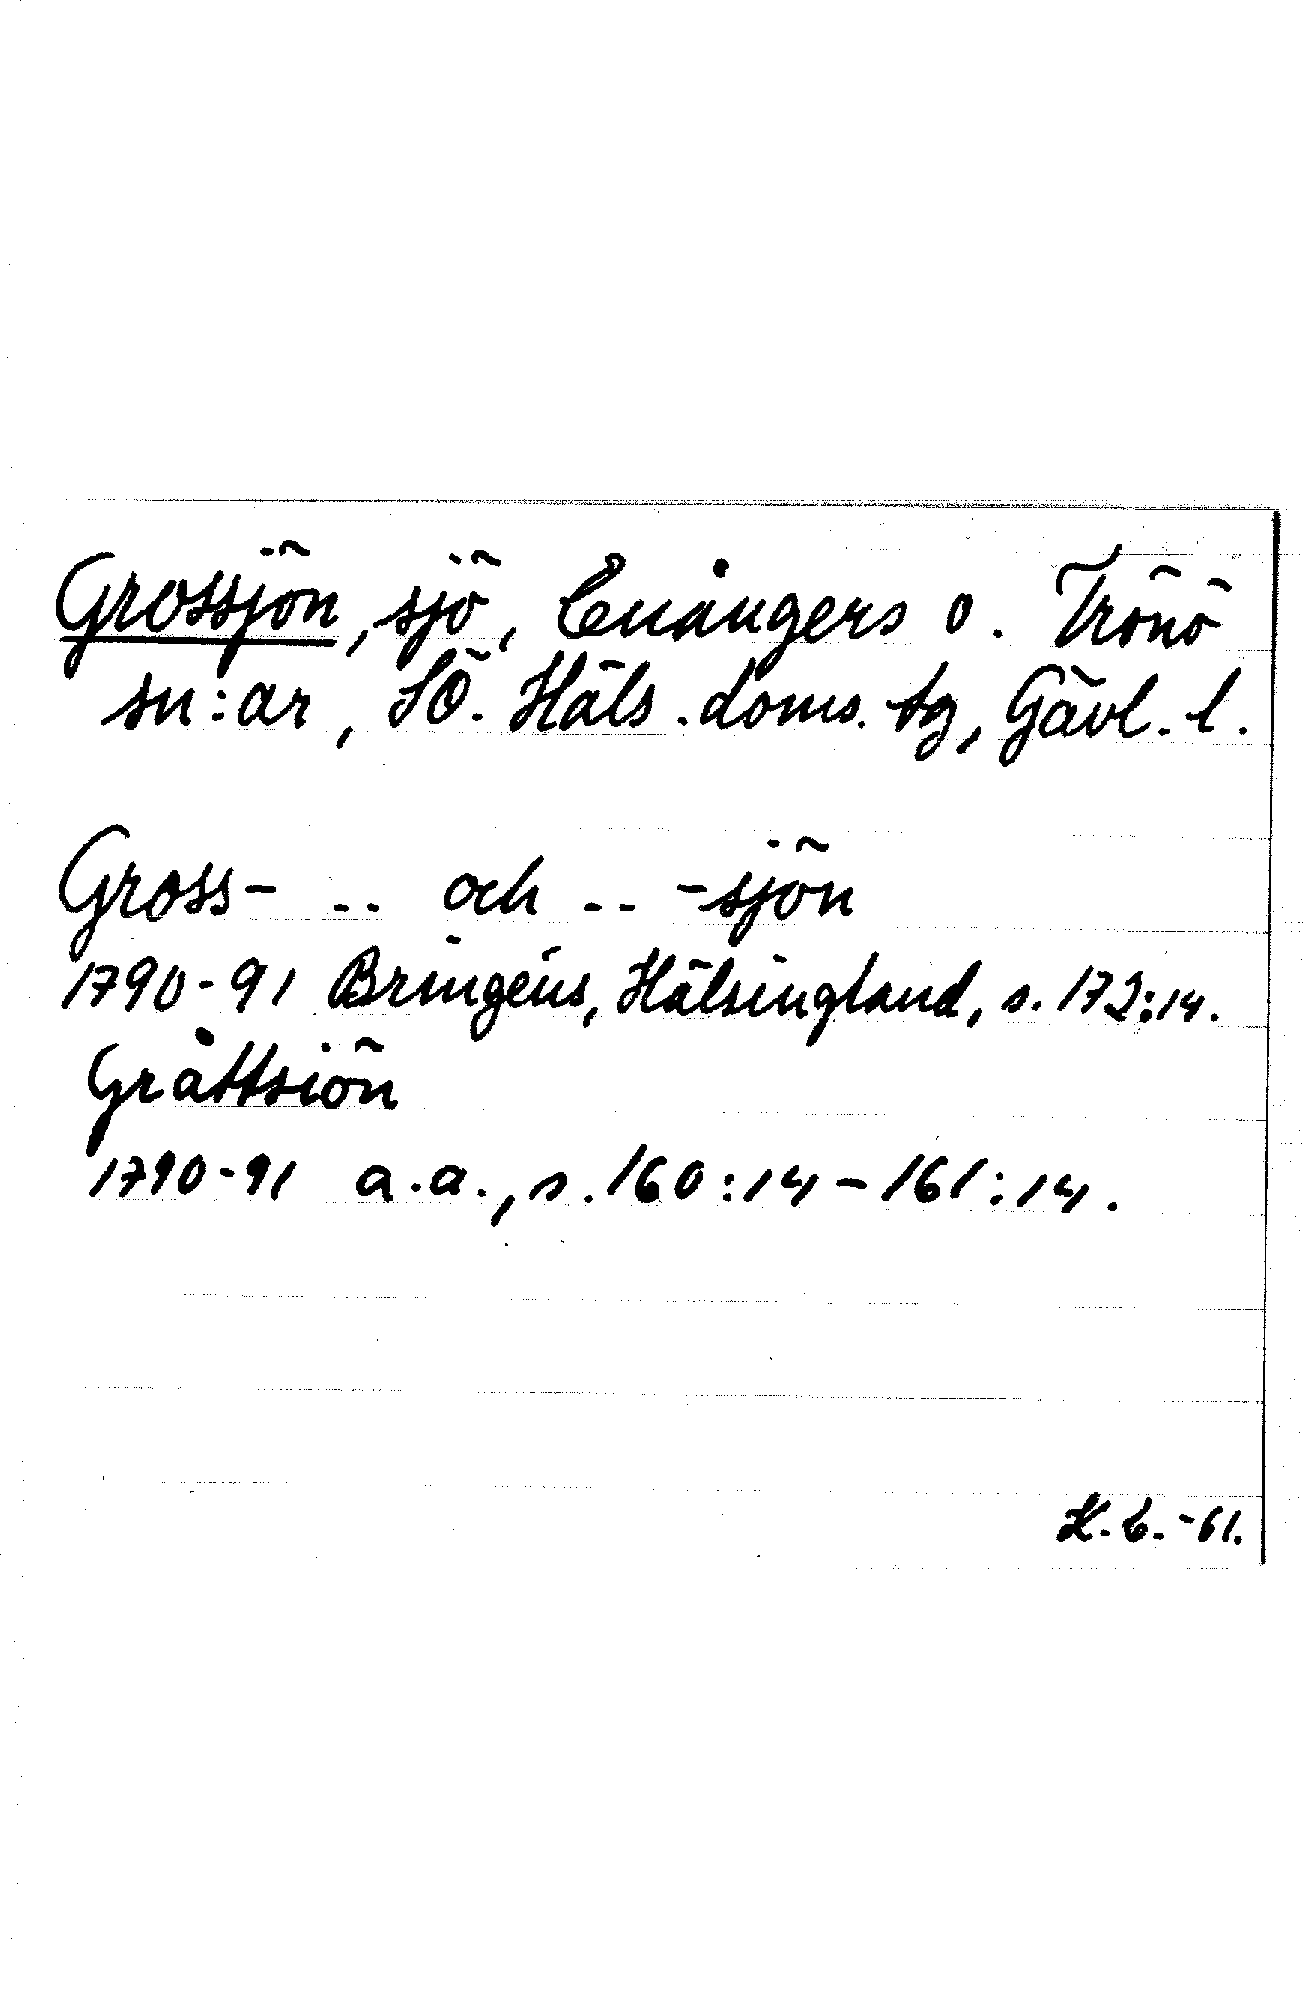 Grossjön, sjö, Enångers o. Trönö
sn:ar, SÖ. Häls. doms. tg, Gävl. l.
Gross- .. och .. -sjön
1790-91 Bringéus, Hälsingland, s. 172:14.
Gråttsiön
1790-91 a.a., s. 160:14-161:14.
K.E.-61.